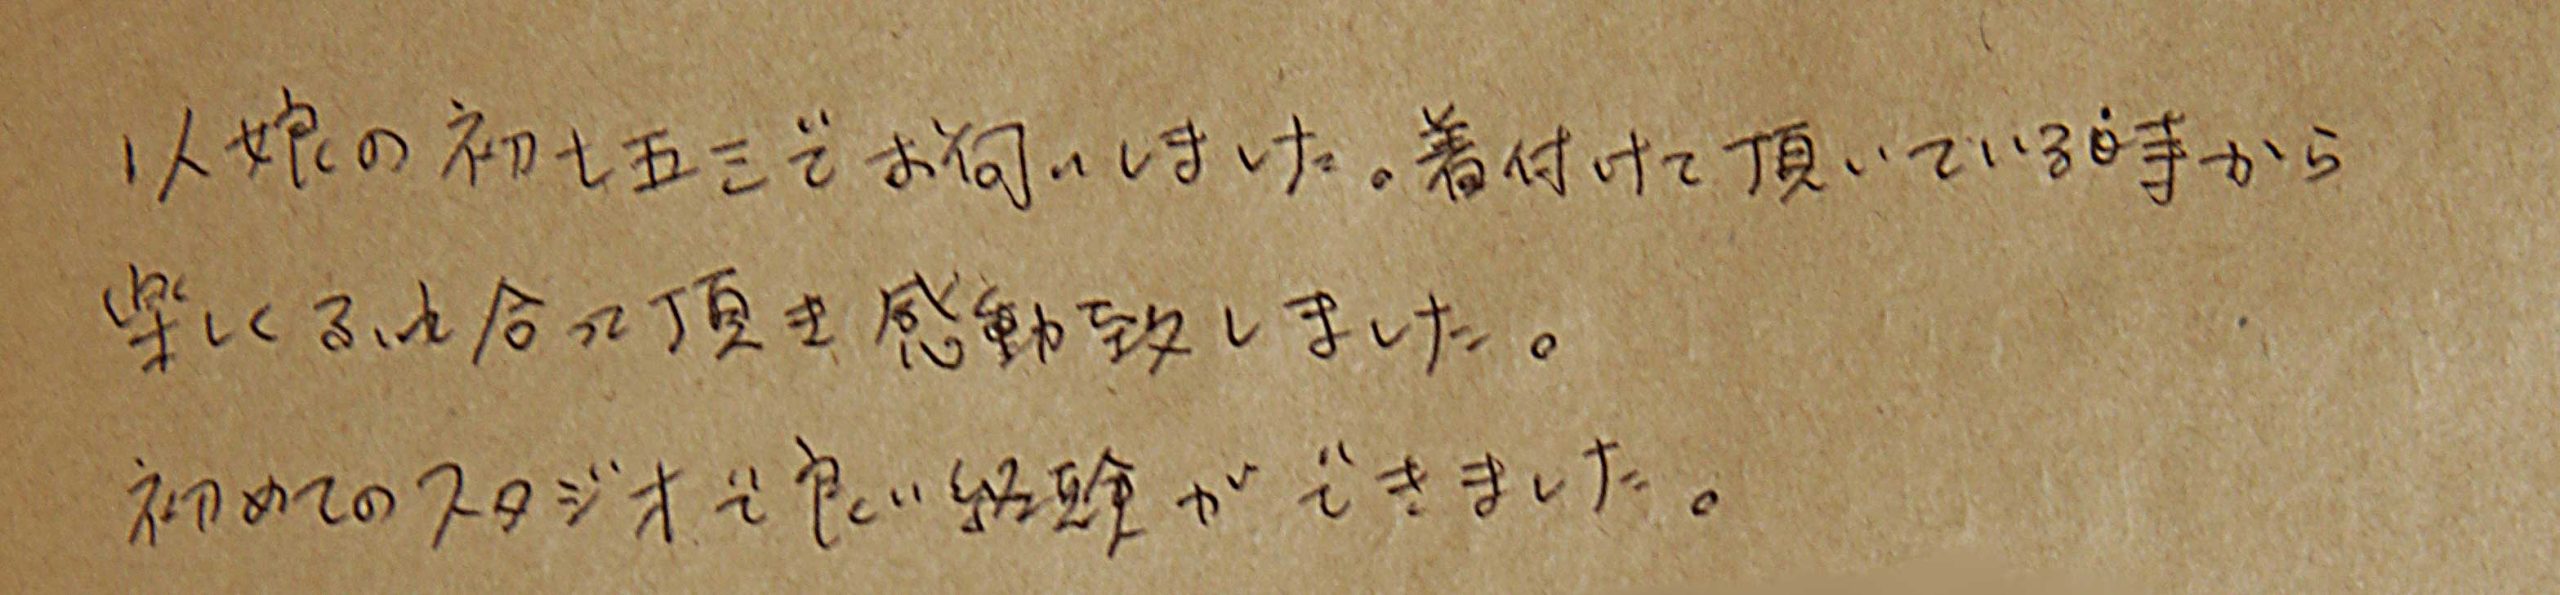 1人娘の初七五三でお伺いしました。着付けて頂いている時から
楽しくふれ合って頂き感動致しました。
初めてのスタジオで良い経験ができました。